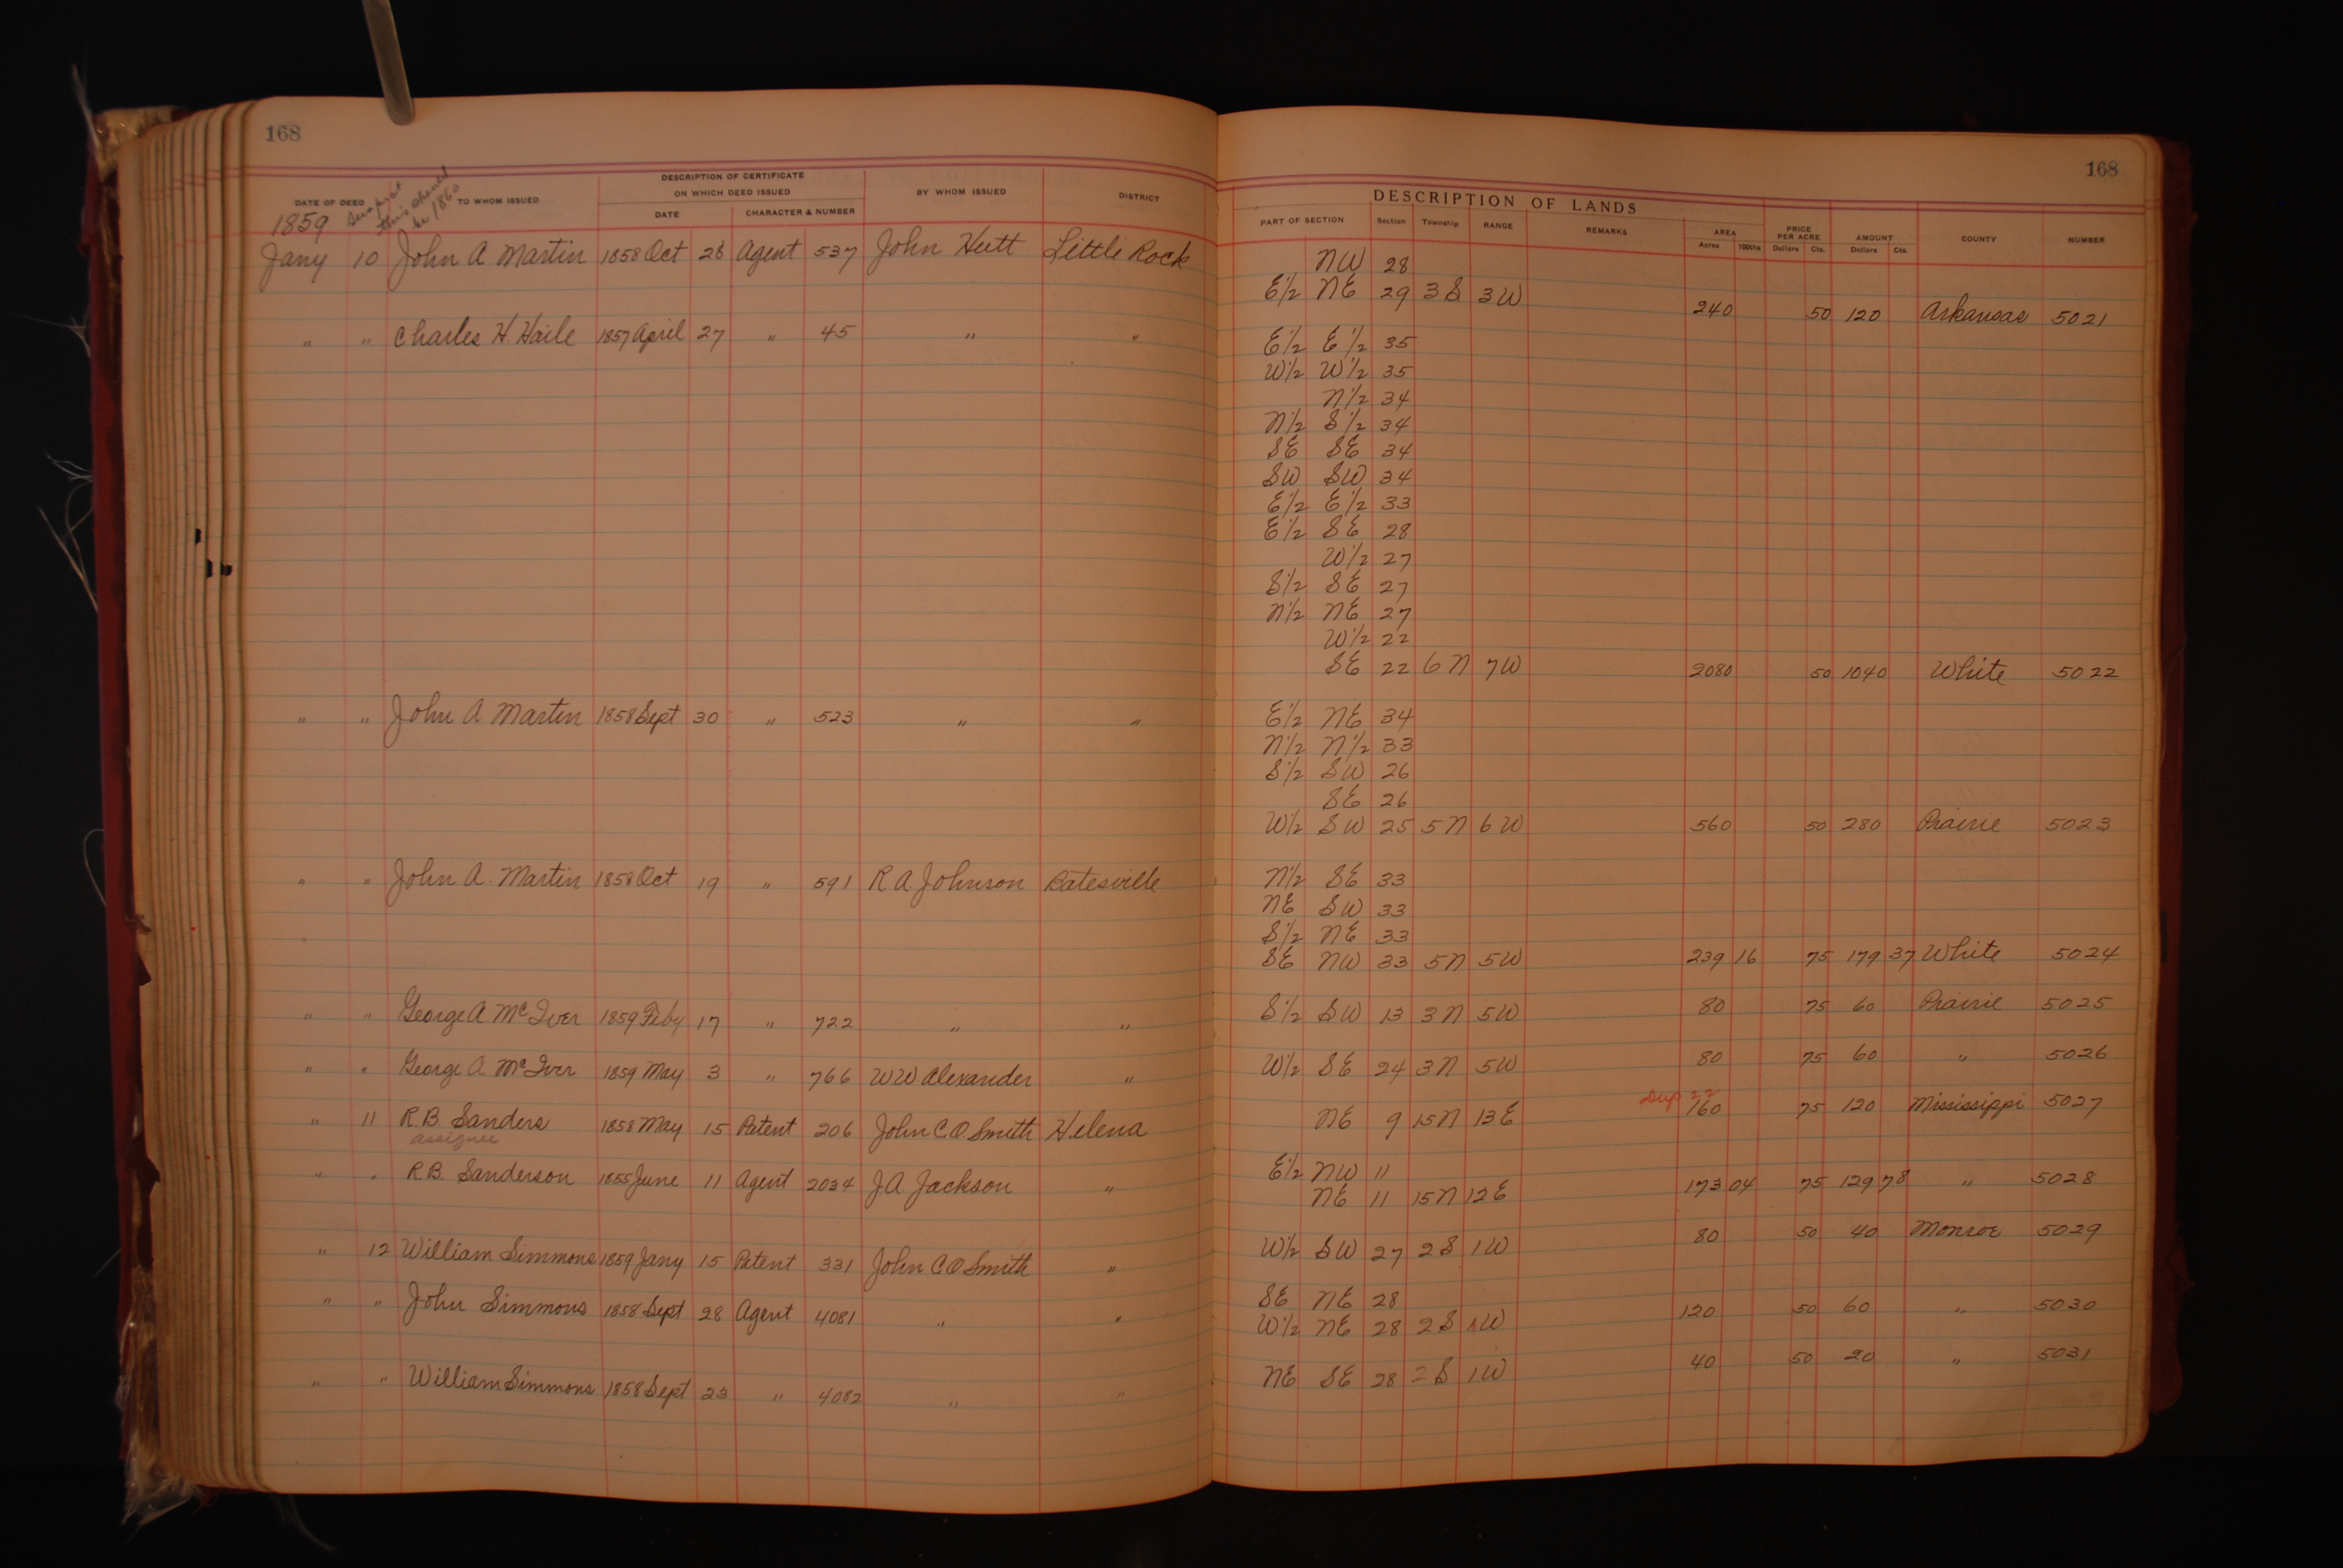 168
168
DATE OF DEED TO WHOM ISSUED DESCRIPTION OF CERTIFICATE ON WHICH DEED ISSUED DATE CHARACTER & NUMBER BY WHOM ISSUED DISTRICT
DESCRIPTION OF LANDS
PART OF SECTION Section Township RANGE REMARKS AREA Acres 100ths PRICE PER ACRE Dollars Cts. AMOUNT Dollars Cts. COUNTY NUMBER
1859 this should be 1860
Jany 10 John A Martin 1858 Oct 28 Agent 537 John Hutt Little Rock NW 28
E½ NE 29 3 S 3 W 240 50 120 Arkansas 5021
" " Charles H. Haile 1857 April 27 " 45 " " E½ E½ 35
W½ W½ 35
N½ 34
N½ S½ 34
SE SE 34
SW SW 34
E½ E½ 33
E½ SE 28
W½ 27
S½ SE 27
N½ NE 27
W½ 22
SE 22 6 N 7 W 2080 50 1040 White 5022
" " John A Martin 1858 Sept 30 " 523 " " E½ NE 34
N½ N½ 33
S½ SW 26
SE 26
W½ SW 25 5 N 6 W 560 50 280 Prairie 5023
" " John A. Martin 1858 Oct 19 " 591 R A Johnson Batesville N½ SE 33
NE SW 33
S½ NE 33
SE NW 33 5 N 5 W 239 16 75 179 37 White 5024
" " George A. McIver 1859 Feby 17 " 722 " " S½ SW 13 3 N 5 W 80 75 60 Prairie 5025
" " George A McIver 1859 May 3 " 766 W W Alexander " W½ SE 24 3 N 5 W 80 75 60 " 5026
" 11 R.B. Sanders 1858 May 15 Patent 206 John C.O. Smith Helena NE 9 15 N 13 E 160 75 120 Mississippi 5027
assignee
" " R.B. Sanderson 1855 June 11 Agent 2034 J A Jackson " E½ NW 11
NE 11 15 N 12 E 173 04 75 129 78 " 5028
" 12 William Simmons 1859 Jany 15 Patent 331 John C O Smith " W½ SW 27 2 S 1 W 80 50 40 Monroe 5029
" " John Simmons 1858 Sept 28 Agent 4081 " " SE NE 28
W½ NE 28 2 S 1 W 120 50 60 " 5030
" " William Simmons 1858 Sept 23 " 4082 " " NE SE 28 2 S 1 W 40 50 20 " 5031